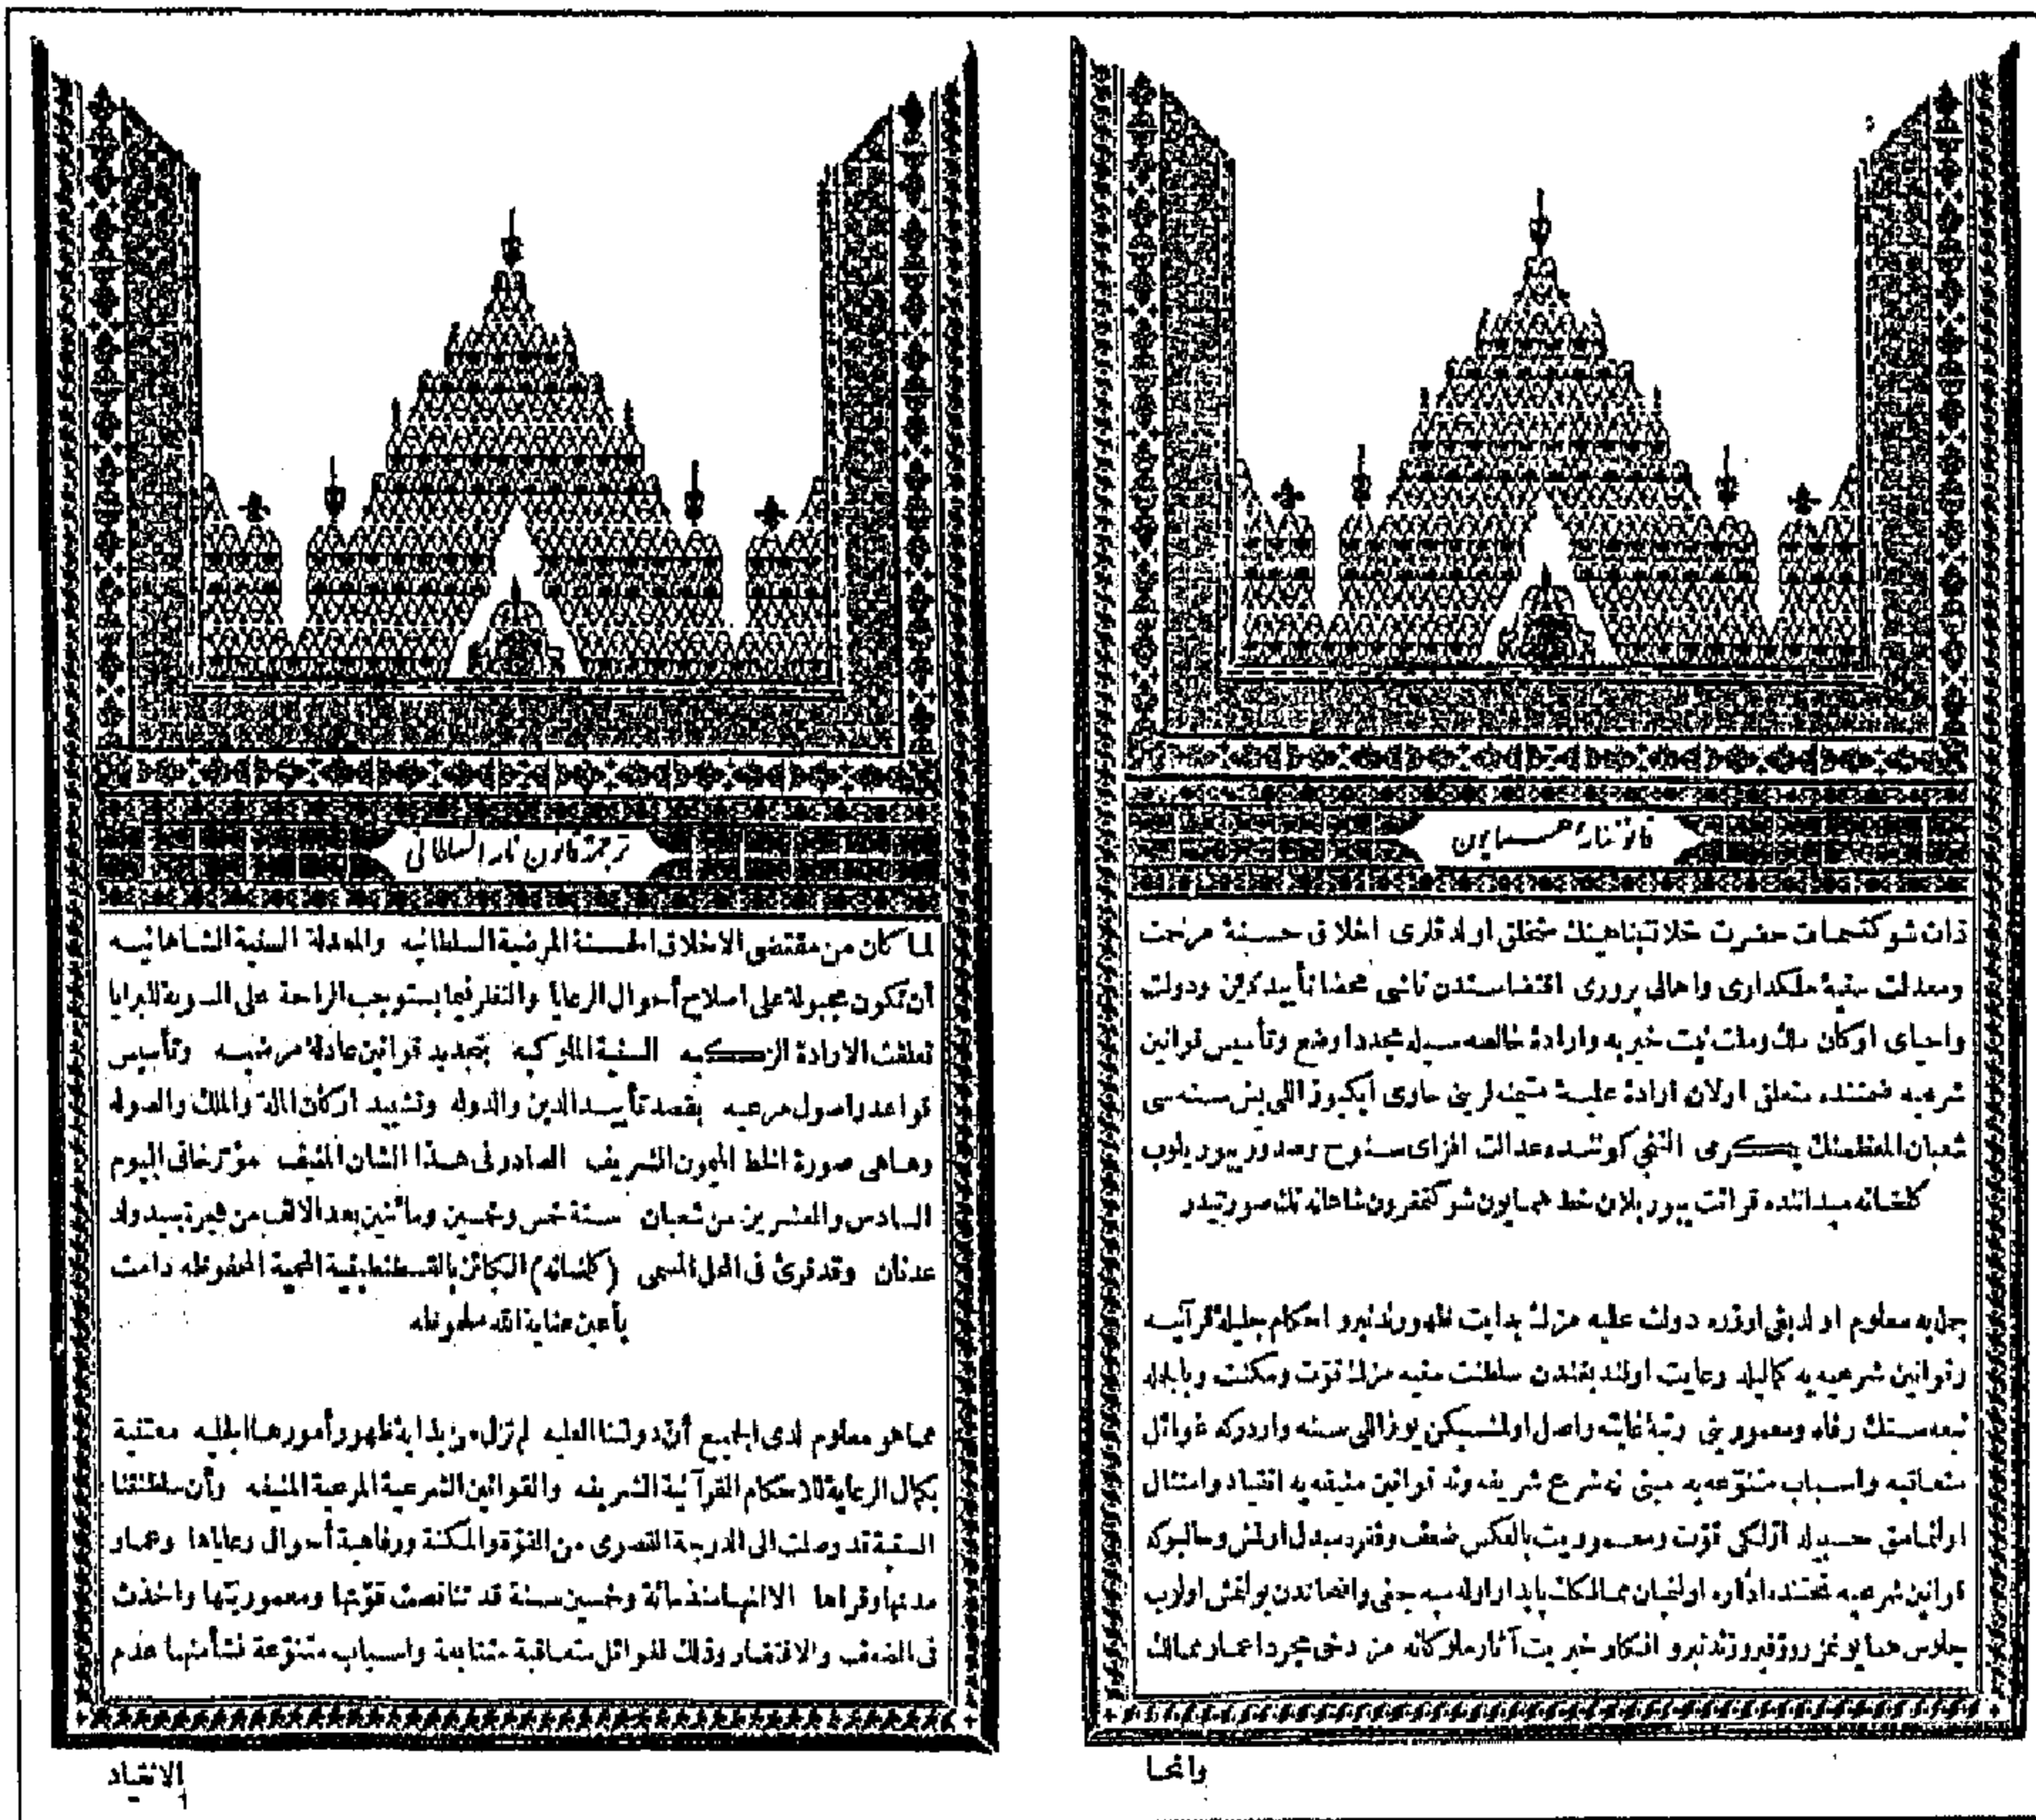 قانوننامهٔ همایون
ذات شوکتسمات حضرت خلافتپناهینك متخلق اولدقلری اخلاق حسنهٔ مرحمت
ومعدلت سنیهٔ ملکداری واهالی پروری اقتضاسندن ناشی محضا تأیید دین ودولت
واحیای ارکان ملك وملت نیت خیریه وارادهٔ خالصه سیله مجددا وضع وتأسیس قوانین
شرعیه ضمننده متعلق اولان ارادهٔ علیهٔ متیمنه لرینی حاوی ایکیوز اللی بش سنه سی
شعبان المعظمنك یکرمی التنجی کوننده عدالت افزای سنوح وصدور بیوریلوب
کلخانه میداننده قرائت بیوریلان خط همایون شوکتمقرون شاهانه نك صورتیدر
جمله یه معلوم اولدیغی اوزره دولت علیه مزك بدایت ظهورندنبرو احکام جلیلهٔ قرآنیه
وقوانین شرعیه یه کمالیله رعایت اولندیغندن سلطنت سنیه مزك قوت ومکنت وبالجمله
تبعه سنك رفاه ومعموریتی رتبهٔ غایته واصل اولمشیکن یوز اللی سنه واردرکه غوائل
متعاقبه واسباب متنوعه یه مبنی نه شرع شریفه ونه قوانین منیفه یه انقیاد وامتثال
اولنمامق حسبیله اولکی قوت ومعموریت بالعکس ضعف وفقره مبدل اولمش وحالبوکه
قوانین شرعیه تحتنده اداره اولنمیان ممالکك پایدار اوله میه جغی واضحاتدن بولنمش اولوب
جلوس همایونمز روز فیروزندنبرو افکار خیریت آثار ملوکانه مز دخی مجرد اعمار ممالك
وانحا
ترجمة قانون نامه السلطانی
لما کان من مقتضى الاخلاق الحسنة المرضية السلطانيه والمعدلة السنية الشاهانيه
أن تكون مجبولة على اصلاح أحوال الرعايا والنظر فيما يستوجب الراحة على السوية للبرايا
تعلقت الارادة الزكيه السنية الملوكيه بتجديد قوانين عادلة مرضيه وتأسيس
قواعد واصول مرعيه بقصد تأييد الدين والدوله وتشييد اركان الملة والملك والصوله
وهاهى صورة الخط الميمون الشريف الصادر فى هذا الشان المنيف مؤرخا فى اليوم
السادس والعشرين من شعبان سنة خمس وخمسين ومائتين بعد الالف من هجرة سيد ولد
عدنان وقد قرئ فى المحل المسمى (كلخانه) الكائن بالقسطنطينية المحمية المحفوظه دامت
بأعين عناية الله ملحوظه
مما هو معلوم لدى الجميع أن دولتنا العليه لم تزل من بداية ظهور أمورها الجليه معتنية
بكمال الرعاية للاحكام القرآنية الشريفه والقوانين الشرعية المرعية المنيفه وأن سلطنتنا
السنية قد وصلت الى الدرجة القصوى من القوة والمكنة ورفاهية أحوال رعاياها وعمار
مدنها وقراها الا انها منذ مائة وخمسين سنة قد تناقصت قوتها ومعموريتها واخذت
فى الضعف والافتقار وذلك لغوائل متعاقبة متتابعة واسباب متنوعة نشأ منها عدم
الانقياد